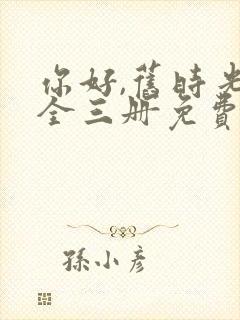 你好,舊時光
全三册免費
孫小彥